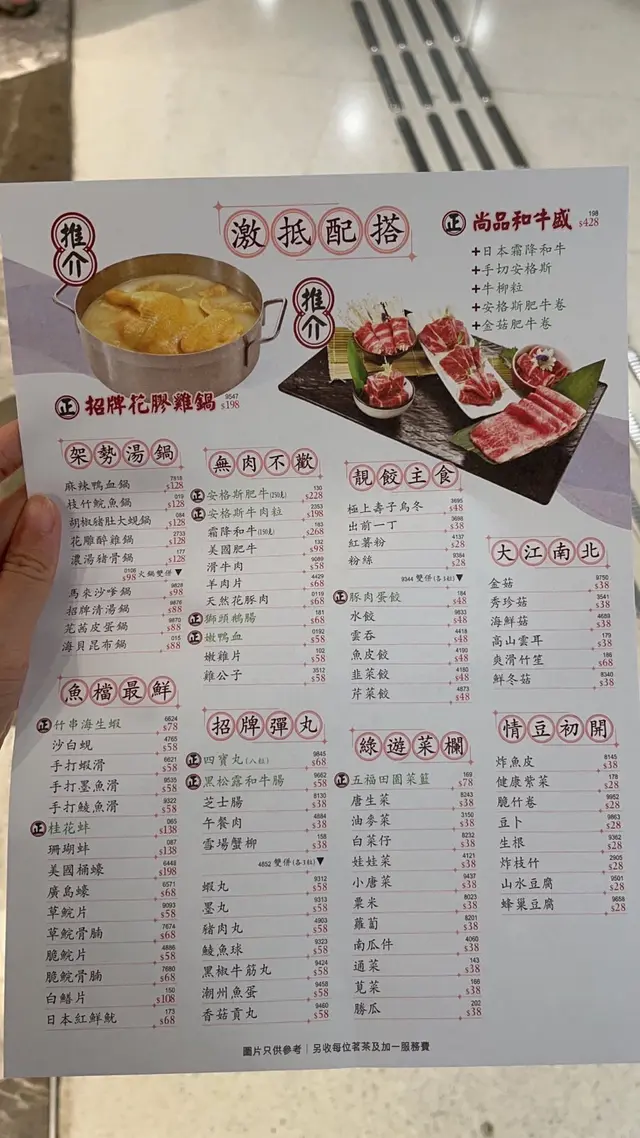 推介
激抵配搭
正 尚品和牛盛 198 $428
+日本霜降和牛
+手切安格斯
+牛柳粒
+安格斯肥牛卷
+金菇肥牛卷
推介
正 招牌花膠雞鍋 9547 $198
架勢湯鍋
麻辣鴨血鍋 7818 $128
枝竹鯇魚鍋 019 $128
胡椒豬肚大蜆鍋 084 $128
花雕醉雞鍋 2733 $128
濃湯豬骨鍋 177 $128
0106 $98 火鍋雙併▼
馬來沙嗲鍋 9828 $98
招牌清湯鍋 9876 $88
芫茜皮蛋鍋 9870 $88
海貝昆布鍋 015 $88
魚檔最鮮
正 竹串海生蝦 6824 $78
沙白蜆 4765 $58
手打蝦滑 6621 $58
手打墨魚滑 9535 $58
手打鯪魚滑 9322 $58
正 桂花蚌 065 $138
珊瑚蚌 087 $138
美國桶蠔 6448 $198
廣島蠔 6571 $68
草鯇片 9093 $58
草鯇骨腩 7674 $68
脆鯇片 4886 $58
脆鯇骨腩 7680 $68
白鱔片 150 $108
日本紅鮮魷 173 $68
無肉不歡
正 安格斯肥牛(150克) 130 $228
正 安格斯牛肉粒 2353 $198
霜降和牛(150克) 163 $268
美國肥牛 132 $98
滑牛肉 9089 $58
羊肉片 4429 $68
天然花豚肉 0119 $68
正 獅頭鵝腸 181 $68
正 嫩鴨血 0192 $58
嫩雞片 102 $58
雞公子 3512 $58
招牌彈丸
正 四寶丸(八粒) 9845 $68
正 黑松露和牛腸 9662 $58
芝士腸 8130 $38
午餐肉 4884 $38
雪場蟹柳 138 $38
4852 雙併(各3粒)▼
蝦丸 9312 $58
墨丸 9313 $58
豬肉丸 4903 $58
鯪魚球 9323 $58
黑椒牛筋丸 9424 $58
潮州魚蛋 9458 $58
香菇貢丸 9460 $58
靚餃主食
極上壽子烏冬 3695 $48
出前一丁 3698 $38
紅薯粉 4132 $28
粉絲 9384 $28
9344 雙併(各3粒)▼
正 豚肉蛋餃 184 $48
水餃 9833 $48
雲吞 4418 $48
魚皮餃 4190 $48
韭菜餃 4180 $48
芹菜餃 4873 $48
綠遊菜欄
正 五福田園菜籃 169 $78
唐生菜 8243 $38
油麥菜 3150 $38
白菜仔 8232 $38
娃娃菜 4121 $38
小唐菜 9437 $38
粟米 8023 $38
蘿蔔 8201 $38
南瓜件 4060 $38
通菜 143 $38
莧菜 166 $38
勝瓜 202 $38
大江南北
金菇 9750 $38
秀珍菇 3541 $38
海鮮菇 4689 $38
高山雲耳 179 $38
爽滑竹笙 186 $68
鮮冬菇 8340 $38
情豆初開
炸魚皮 8145 $38
健康紫菜 178 $28
脆竹卷 9952 $28
豆卜 9863 $28
生根 9362 $28
炸枝竹 2905 $28
山水豆腐 9501 $28
蜂巢豆腐 9658 $28
圖片只供參考｜另收每位茗茶及加一服務費